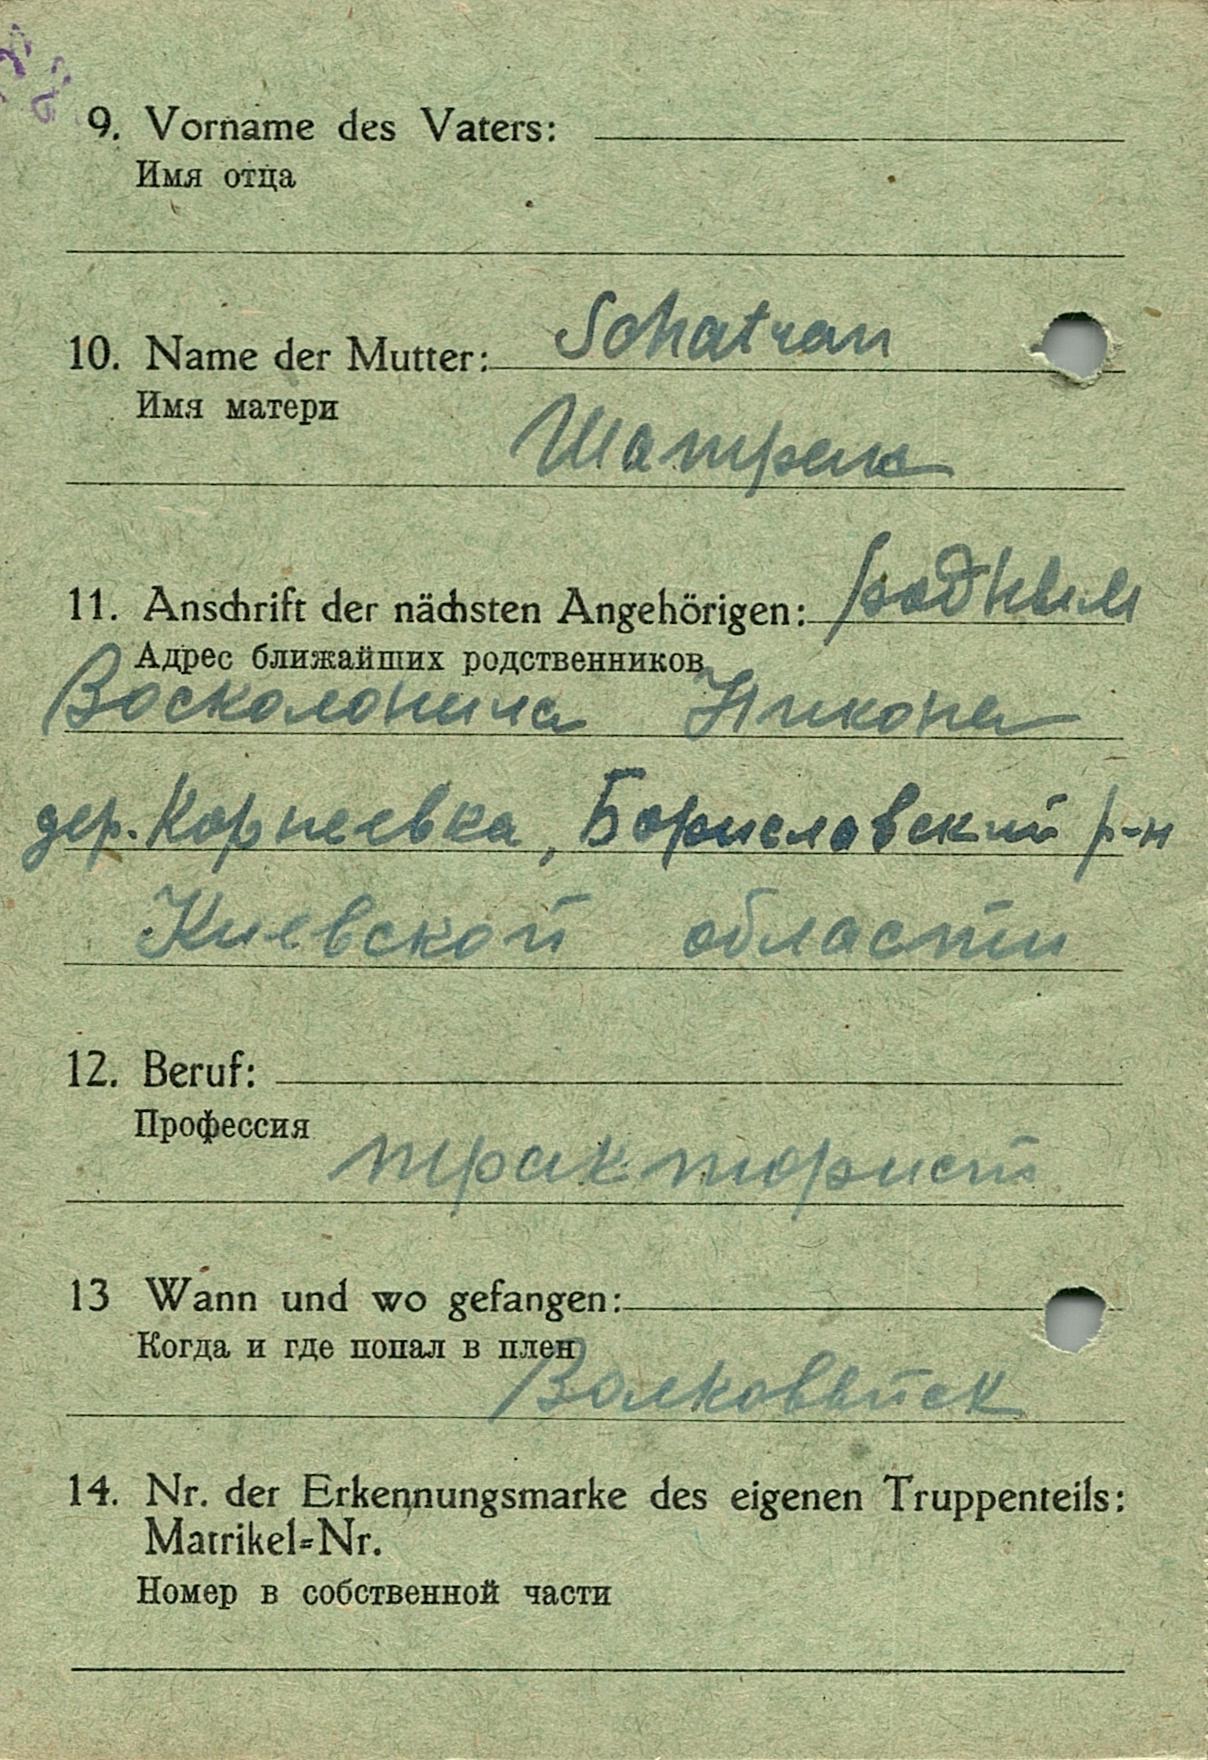 9. Vorname des Vaters:
Имя отца
Schatran
10. Name der Mutter:
Имя матери
Шатран
родным
11. Anschrift der nächsten Angehörigen:
Адрес ближайших родственников
Никона
дер. Корнеевка, Бориславский р-н
Киевской области
12. Beruf:
Профессия
тракторист
13 Wann und wo gefangen:
Когда и где попал в плен
Волковыйск
14. Nr. der Erkennungsmarke des eigenen Truppenteils:
Matrikel=Nr.
Номер в собственной части